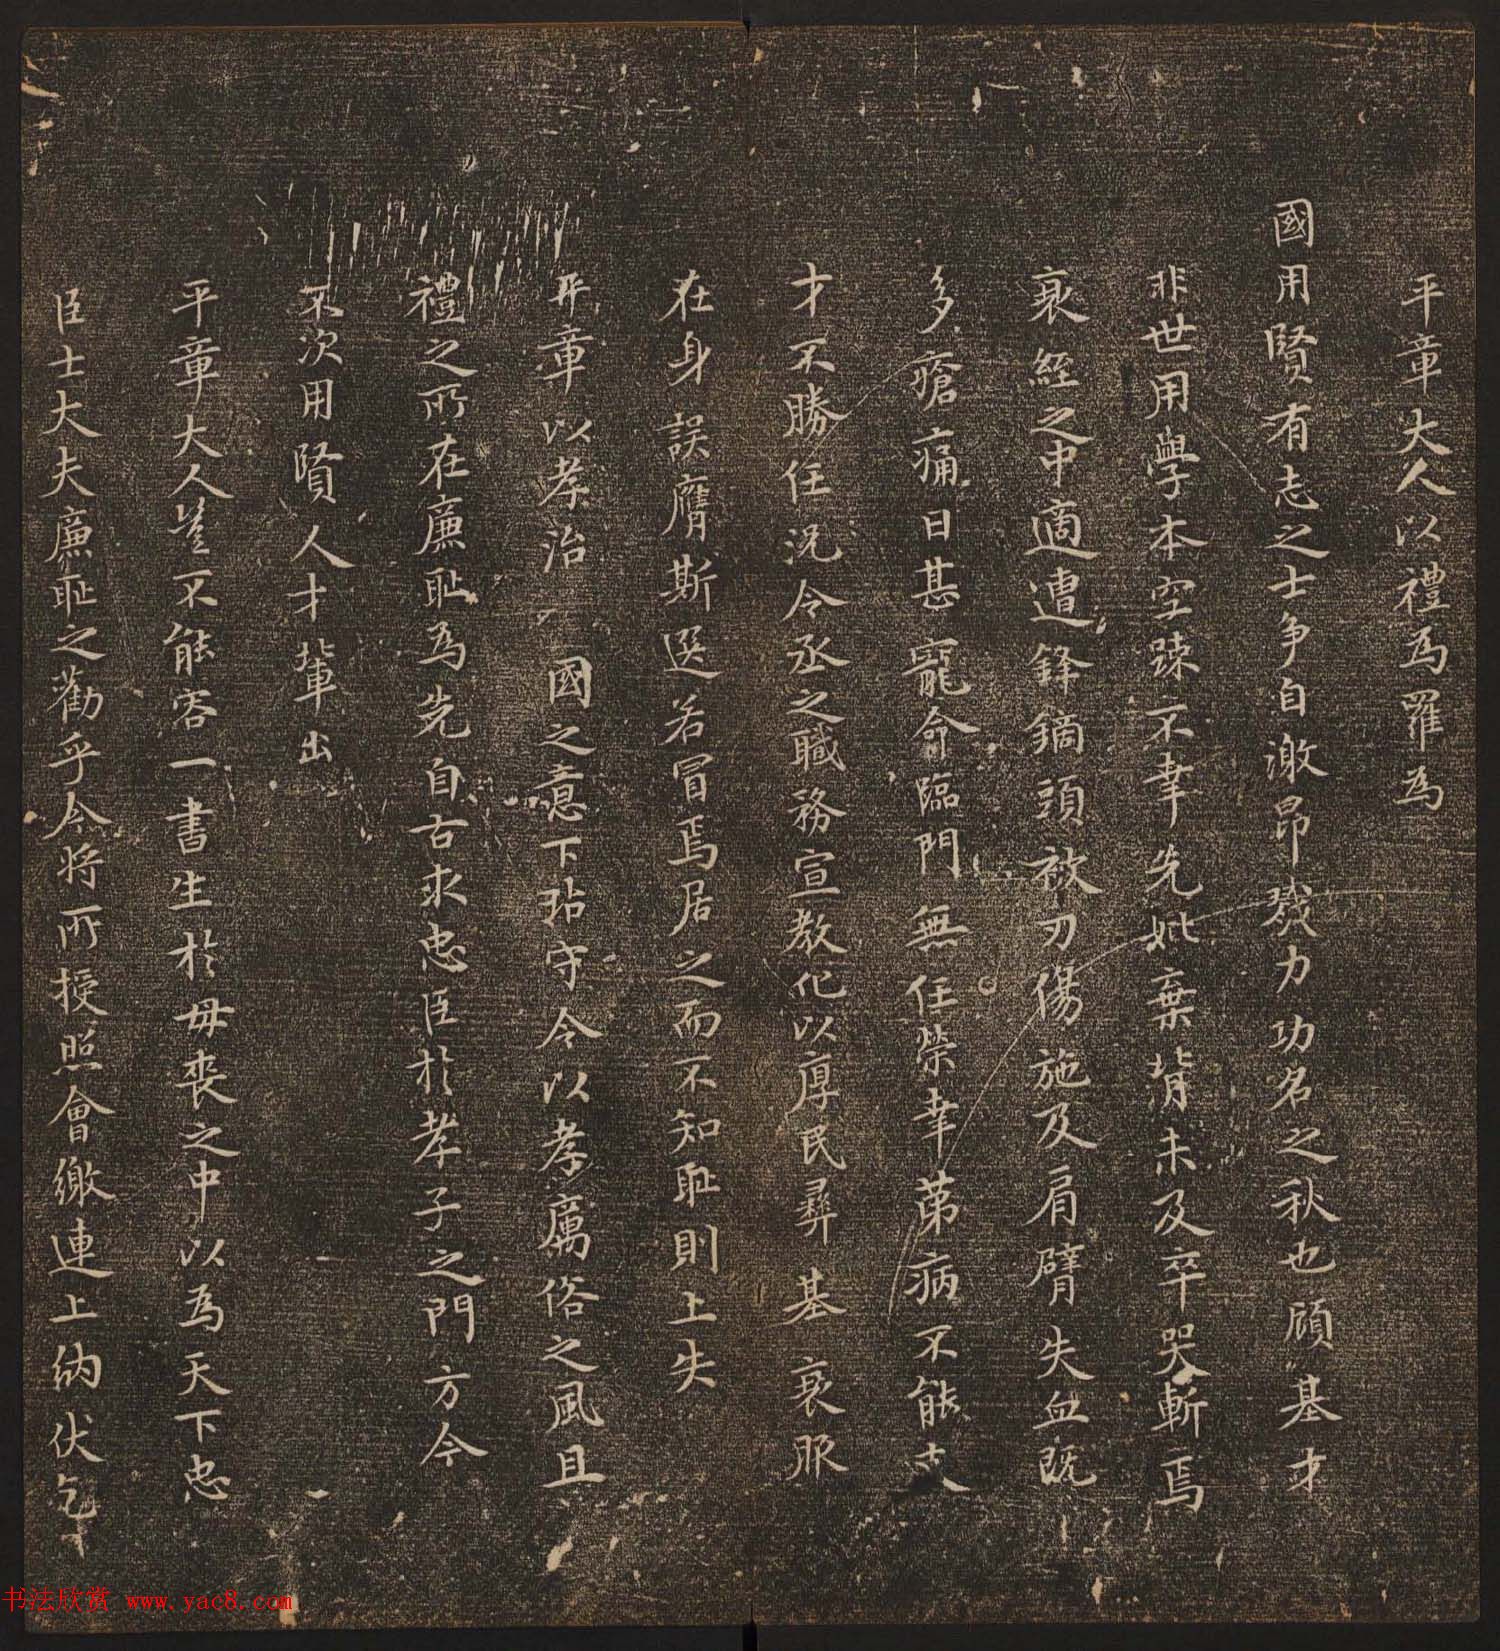 平章大人以禮為羅為
國用賢有志之士争自激昂戮力功名之秋也顧基才
非世用學本空疎不幸先妣棄背未及卒哭斬焉
衰絰之中適遭鋒鏑頭被刀傷施及肩臂失血既
多瘡痛日甚寵命臨門無任榮幸苐病不能支
才不勝任況令丞之職務宣教化以厚民彛基衰服
在身誤膺斯選若冒焉居之而不知耻則上失
平章以孝治國之意下玷守令以孝厲俗之風且
禮之所在廉耻為先自古求忠臣於孝子之門方今
不次用賢人才輩出
平章大人豈不能容一書生於母喪之中以為天下忠
臣士大夫廉耻之勸乎今將所授照會繳連上納伏乞
书法欣赏 www.yac8.com